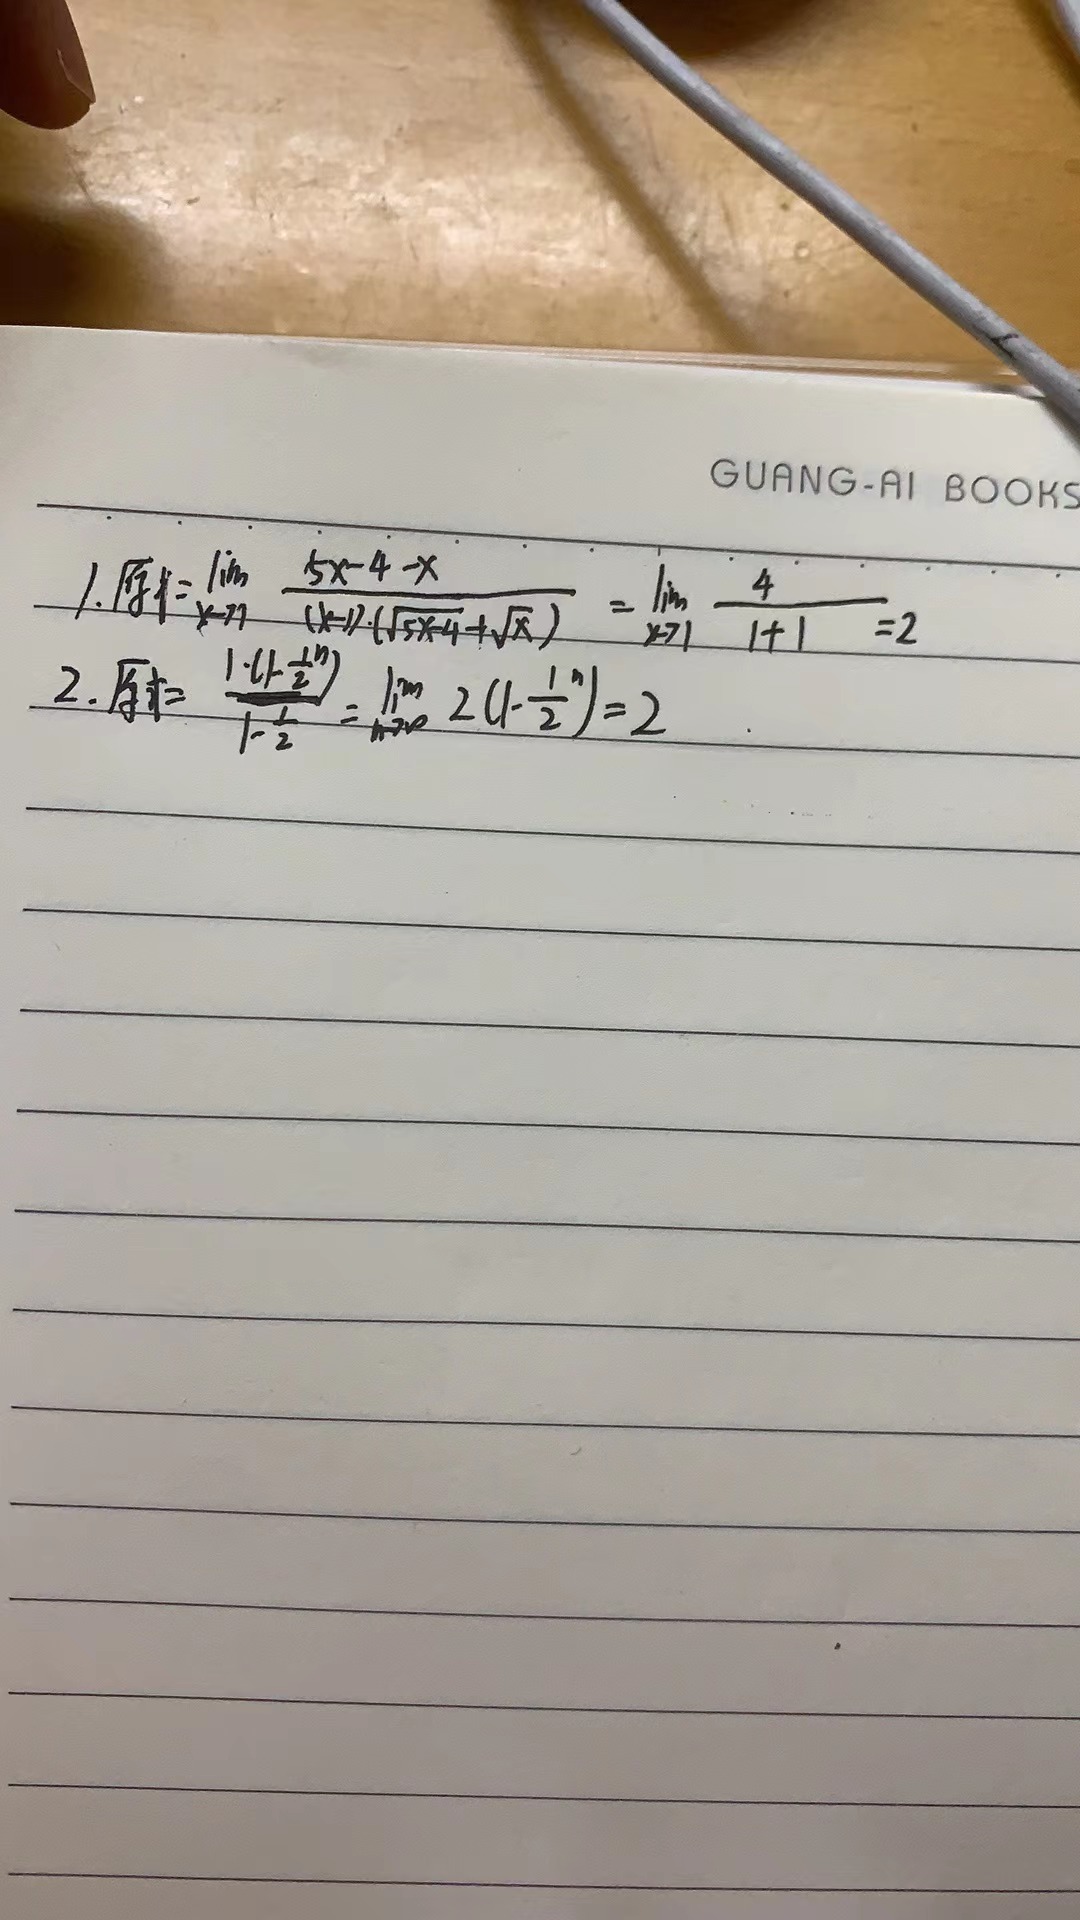 GUANG-AI BOOKS
1. 原式= lim x→1 (5x-4-x)/((x-1)·(√(5x-4)+√x)) = lim x→1 4/(1+1) =2
2. 原式= (1·(1-1/2^n))/(1-1/2) = lim n→∞ 2(1-1/2^n)=2